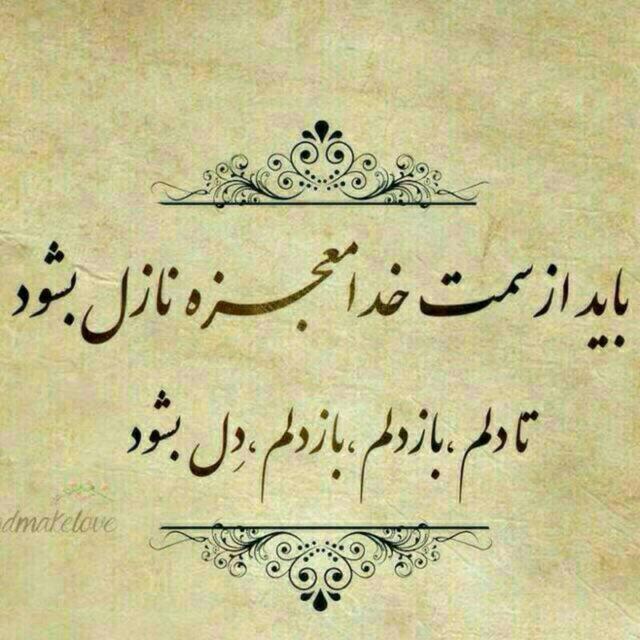 باید از سمت خدا معجزه نازل بشود
تا دلم ، باز دلم ، باز دلم ، دِل بشود
dmakelove